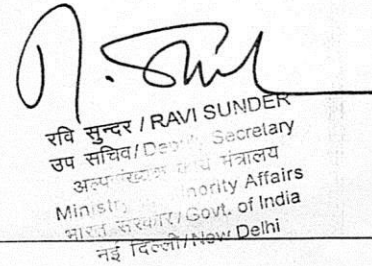 रवि सुन्दर / RAVI SUNDER
उप सचिव / Deputy Secretary
मंत्रालय
Ministry Minority Affairs
भारत सरकार / Govt. of India
नई दिल्ली / New Delhi